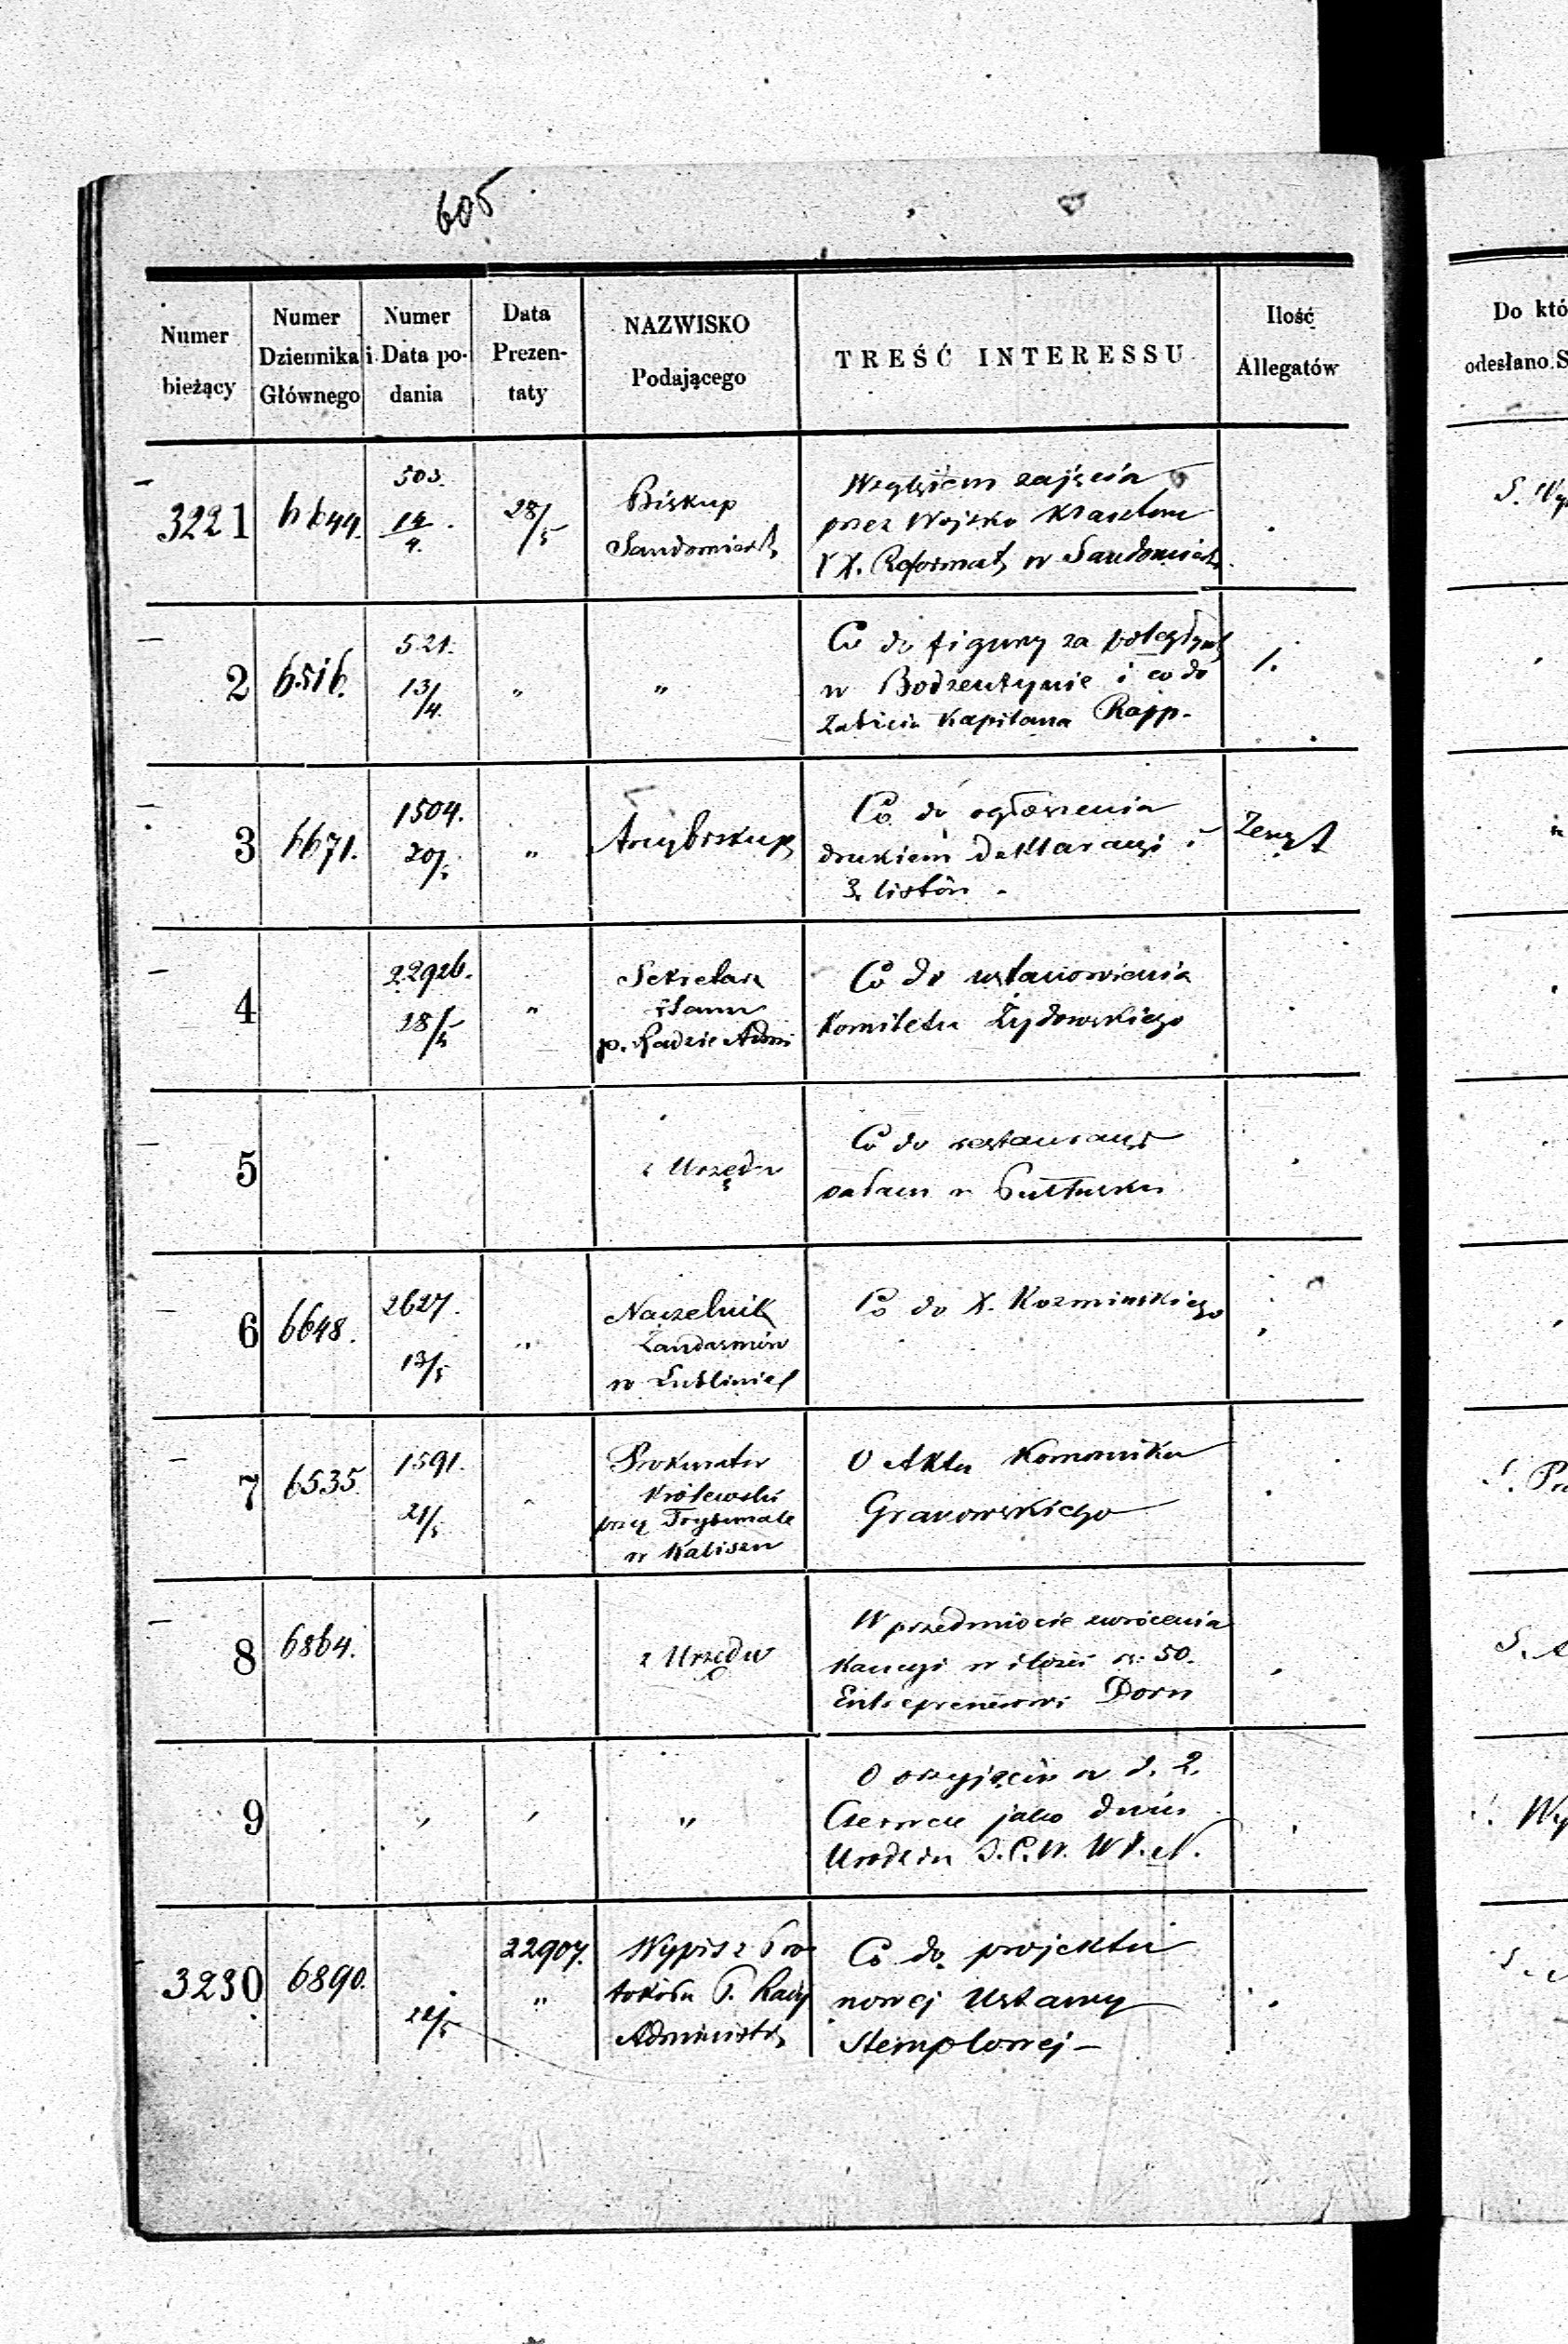 605
Numer bieżący
Numer Dziennika Głównego
Numer i Data podania
Data Prezentaty
NAZWISKO Podającego
TREŚĆ INTERESSU
Ilość Allegatów
Do któ
odesłano. S
3221
6644.
503.
14/4.
28/5
Biskup
Sandomiersk
Względem zajęcia
przez Wojsko Klasztoru
XX. Reformat, w Sandomierz.
S. Wy
2
6516.
521.
13/4.
"
"
Co do figury za poległych
w Bodzentynie i co do
Zabicia Kapitana Rapp.
1.
3
6671.
1504.
20/5
"
Arcybiskup
Co do ogłoszenia
drukiem deklaracyi i
3. listów.
Zeszyt
4
22926.
18/5
"
Sekretarz
Stanu
p. Radzie Admi
Co do ustanowienia
Komitetu Żydowskiego
5
z Urzędu
Co do restauracyi
pałacu w Pułtusku
6
6648.
2627.
13/5
"
Naczelnik
Żandarmów
w Lublinie
Co do X. Kozminskiego
7
6535
1591.
21/5
Prokurator
Królewski
przy Trybunale
w Kaliszu
O Akta Komornika
Grabowskiego
S. Pra
8
6864.
z Urzędu
W przedmiocie zwrócenia
Kaucyi w ilości rs. 50.
Entreprenerowi Dorn
9
"
"
"
O przyjęciu w d. 2.
Czerwca jako dniu
Urodzin J. C. W. W. X.
Wy
3230
6890.
22/5
22907.
"
Wypis z Pro
tokółu P. Rady
Administr,
Co do projektu
nowej Ustawy
Stemplowej –